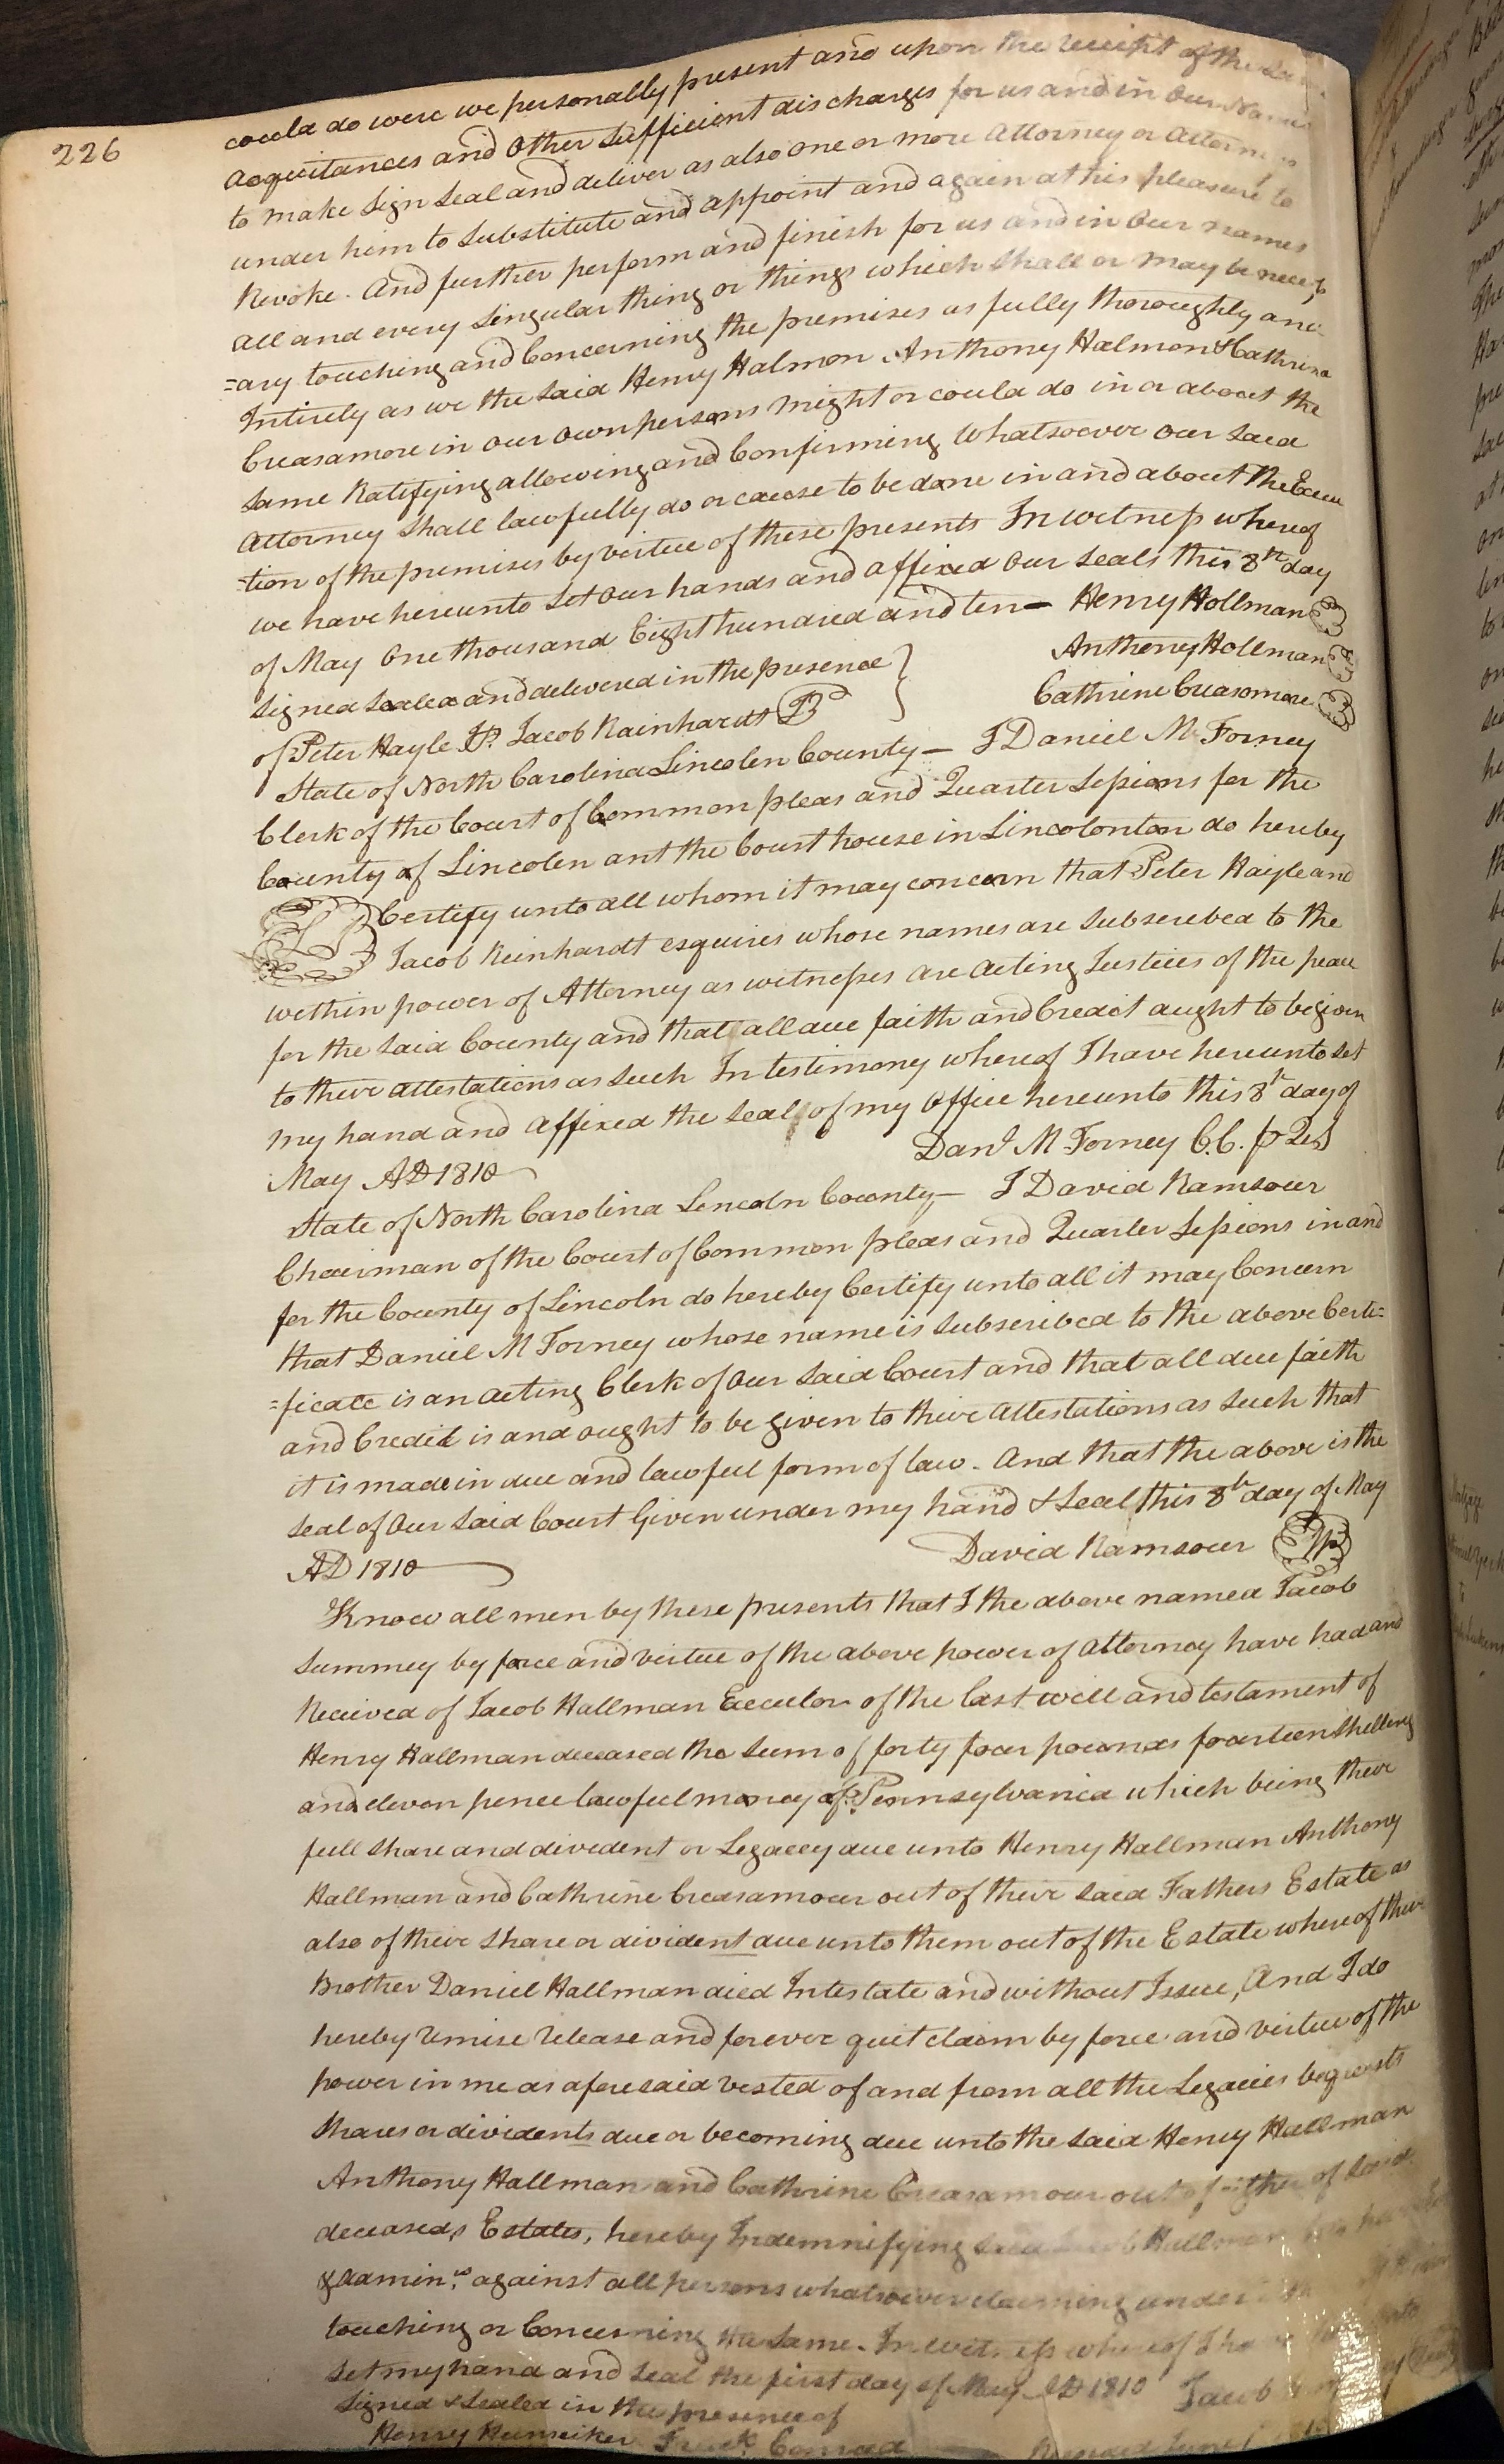 226
coula do were we personally present and upon the receipt of the
Acquitances and Other Sufficient discharges for us and in Our Names
to make Sign Seal and deliver as also one or more Attorney or Attorneys
under him to Substitute and appoint and again at his pleasure to
Revoke. And further perform and finish for us and in Our names
all and every Singular thing or things which Shall or May be necess
=ary touching and Concerning the premises as fully thoroughly and
Intirely as we the Said Henry Halmon Anthony Halmon & Cathrina
Creasamore in our own persons might or coula do in or about the
Same Ratifying allowing and Confirming Whatsoever our Said
Attorney Shall lawfully do or cause to be done in and about the Execu
=tion of the premises by virtue of these presents In witness whereof
we have hereunto Set our hands and affixed our Seals this 8th day
of May One thousand Eight hundred and ten — Henry Hollman
Signed Sealed and delivered in the presence } Anthony Hollman
of Peter Hayle JP. Jacob Rainhardt JP Cathrine Creasomore
State of North Carolina Lincolen County — I Daniel M Forney
Clerk of the Court of Common pleas and Quarter Sessions for the
County of Lincolen ant the Court house in Lincolonton do hereby
Certify unto all whom it may concern that Peter Hayle and
Jacob Reinhardt esquires whose names are Subscribed to the
within power of Attorney as witnesses are Acting Justices of the peace
for the Said County and that all due faith and Credit aught to be given
to there attestations as Such In testimony whereof I have hereunto Set
my hand and affixed the Seal of my Office hereunto this 8th day of
May AD 1810 Danl M Forney C.C. p Qes
State of North Carolina Lincoln County — I David Ramsour
Chairman of the Court of Common pleas and Quarter Sessions in and
for the County of Lincoln do hereby Certify unto all it may Concern
that Daniel M Forney whose name is Subscribed to the above Certi=
=ficate is an acting Clerk of Our Said Court and that all due faith
and Credit is and ought to be given to there attestations as Such that
it is made in due and lawful form of law. And that the above is the
Seal of Our Said Court Given under my hand & Seal this 8th day of May
AD 1810 David Ramsour
Know all men by these presents that I the above named Jacob
Summey by force and virtue of the above power of Attorney have had and
Received of Jacob Hallman Executor of the last will and testament of
Henry Hallman deceased the Sum of forty four pounds fourteen Shillings
and eleven pence lawful money of Pennsylvania which being there
full Share and divident or Legacey due unto Henry Hallman Anthony
Hallman and Cathrine Creasamour out of there Said Fathers Estate as
also of there Share or divident due unto them out of the Estate whereof there
Brother Daniel Hallman died Intestate and without Issue, And I do
hereby remise release and forever quit claim by force and virtue of the
power in me as aforesaid vested of and from all the Legacies bequests
Shares or dividents due or becoming due unto the Said Henry Hallman
Anthony Hallman and Cathrine Creasamour out of either of Said
deceaseds Estates, hereby Indemnifying Said Jacob Hallman his
& admin.rs against all persons whatsoever claiming under
touching or Concerning the Same. In witness whereof I have
Set my hand and Seal the first day of May AD 1810 Jacob
Signed & Sealed in the presence of
Henry Hunsiker Fredk. Conrad Recorded June